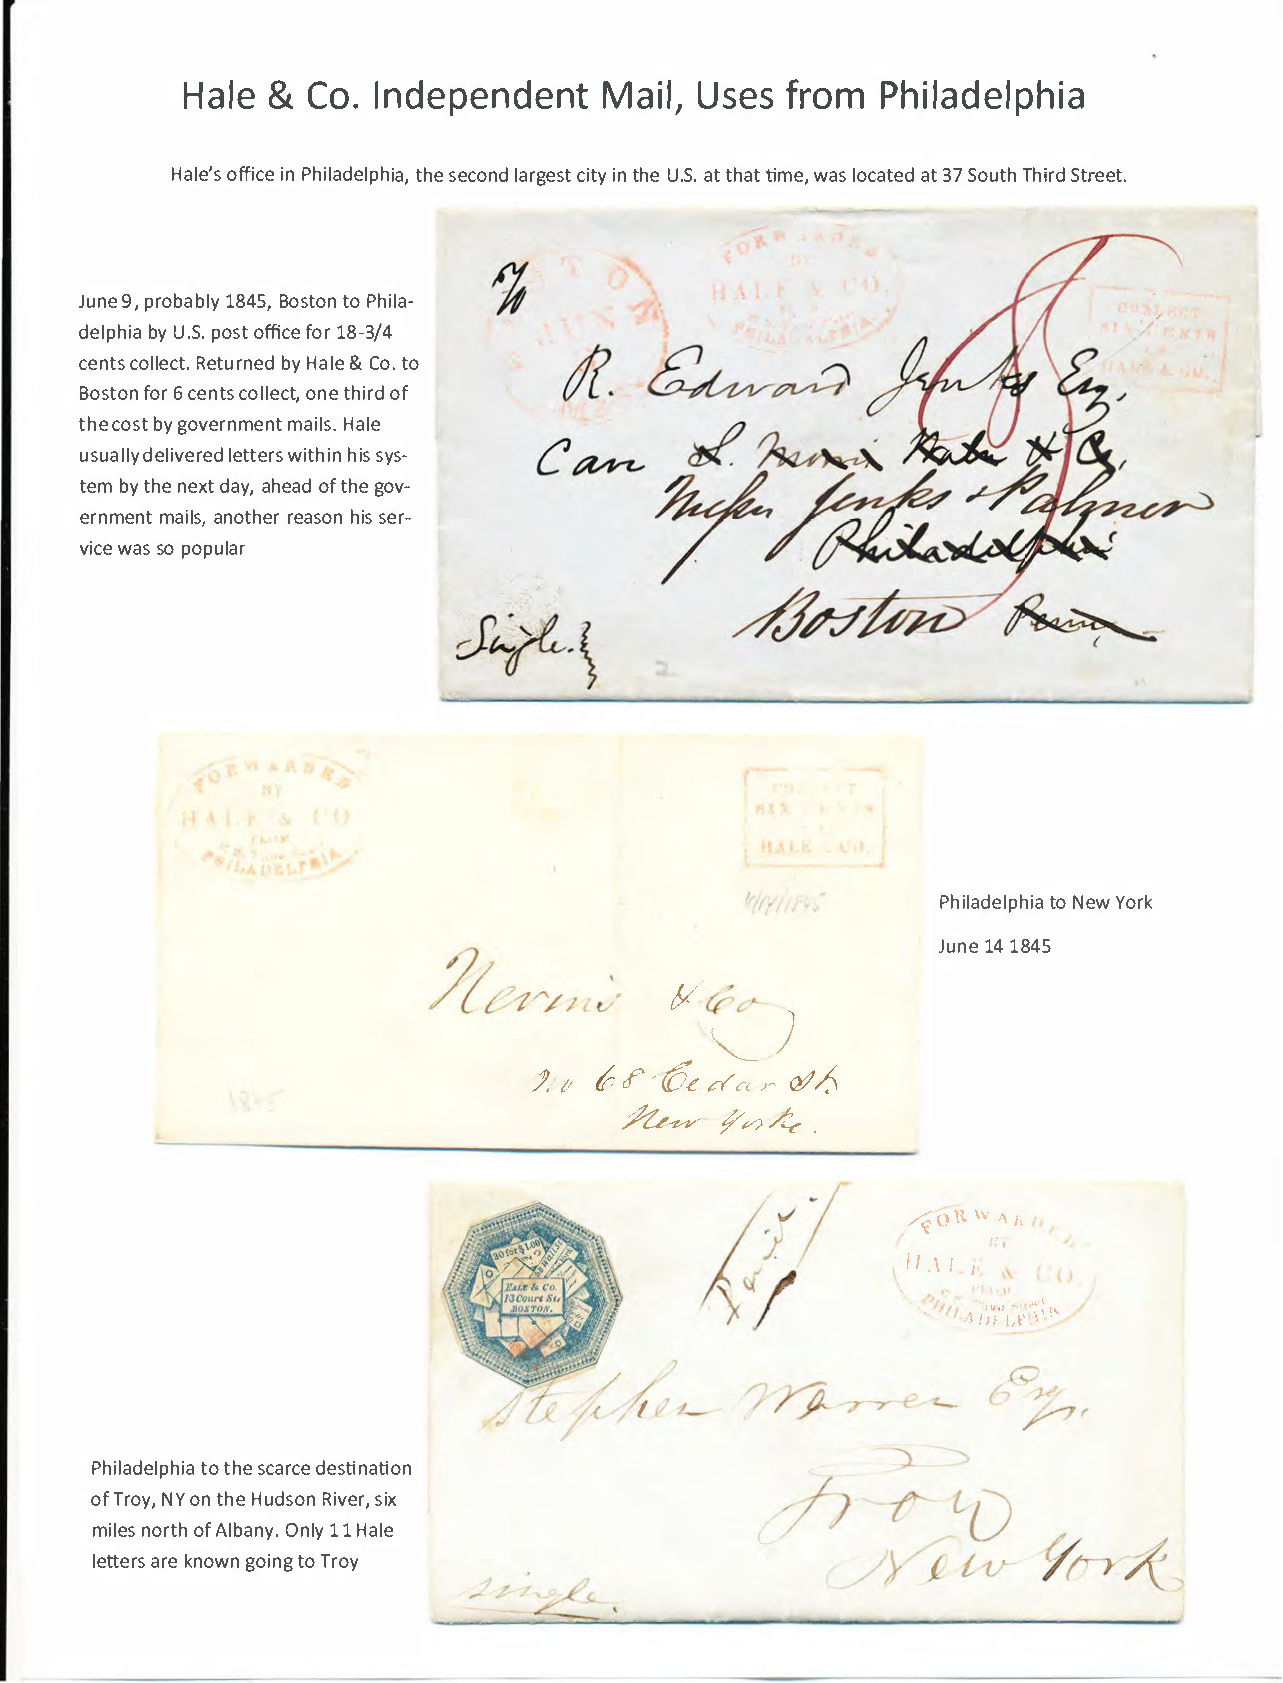 Hale & Co. Independent Mail, Uses from Philadelphia
Hale's office in Philadelphia, the second largest city in the U.S. at that time, was located at 37 South Third Street.
June 9, probably 1845, Boston to Phila-
delphia by U.S. post office for 18-3/4
cents collect. Returned by Hale & Co. to
Boston for 6 cents collect, one third of
the cost by government mails. Hale
usually delivered letters within his sys-
tem by the next day, ahead of the gov-
ernment mails, another reason his ser-
vice was so popular
FORWARDED
BY
HALE & CO.
PHILADELPHIA.
COLLECT
SIX CENTS
HALE & CO.
R. Edward Jenks Esq.
Care S.
Messrs Jenks & Palmer
Philadelphia
Boston Penn,
Single.
FORWARDED
BY
HALE & CO
FROM
PHILADELPHIA
COLLECT
SIX CENTS
HALE & CO.
6/14/1845
Nevins & Co
No 68 Cedar St.
New Yorke.
1845
Philadelphia to New York
June 14 1845
20 for $1.00
HALE & Co.
13 Court St.
BOSTON.
Paid
FORWARDED
BY
HALE & CO.
FROM
PHILADELPHIA
Stephen Warren Esq.
Troy
New York
single.
Philadelphia to the scarce destination
of Troy, NY on the Hudson River, six
miles north of Albany. Only 11 Hale
letters are known going to Troy